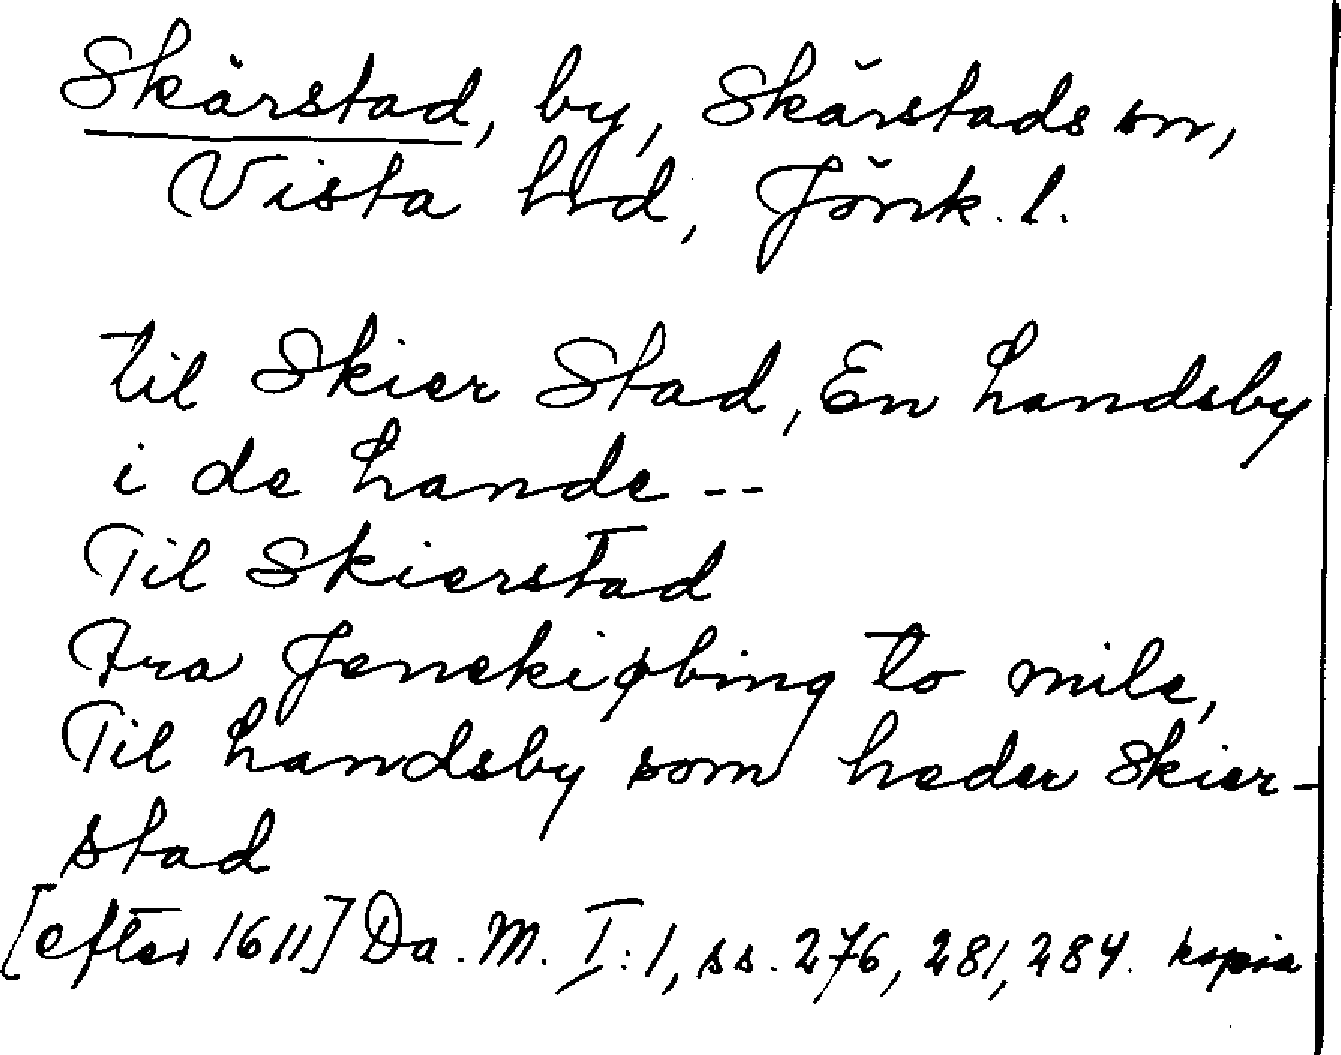 Skärstad, by, Skärstads sn,
Vista hd, Jönk. l.
til Skier Stad, En Landsby
i de Lande --
Til Skierstad
Fra Jenckiøbing to mile,
Til Landsby som heder Skier-
stad
[efter 1611] Da. M. I:1, ss. 276, 281, 284. kopia